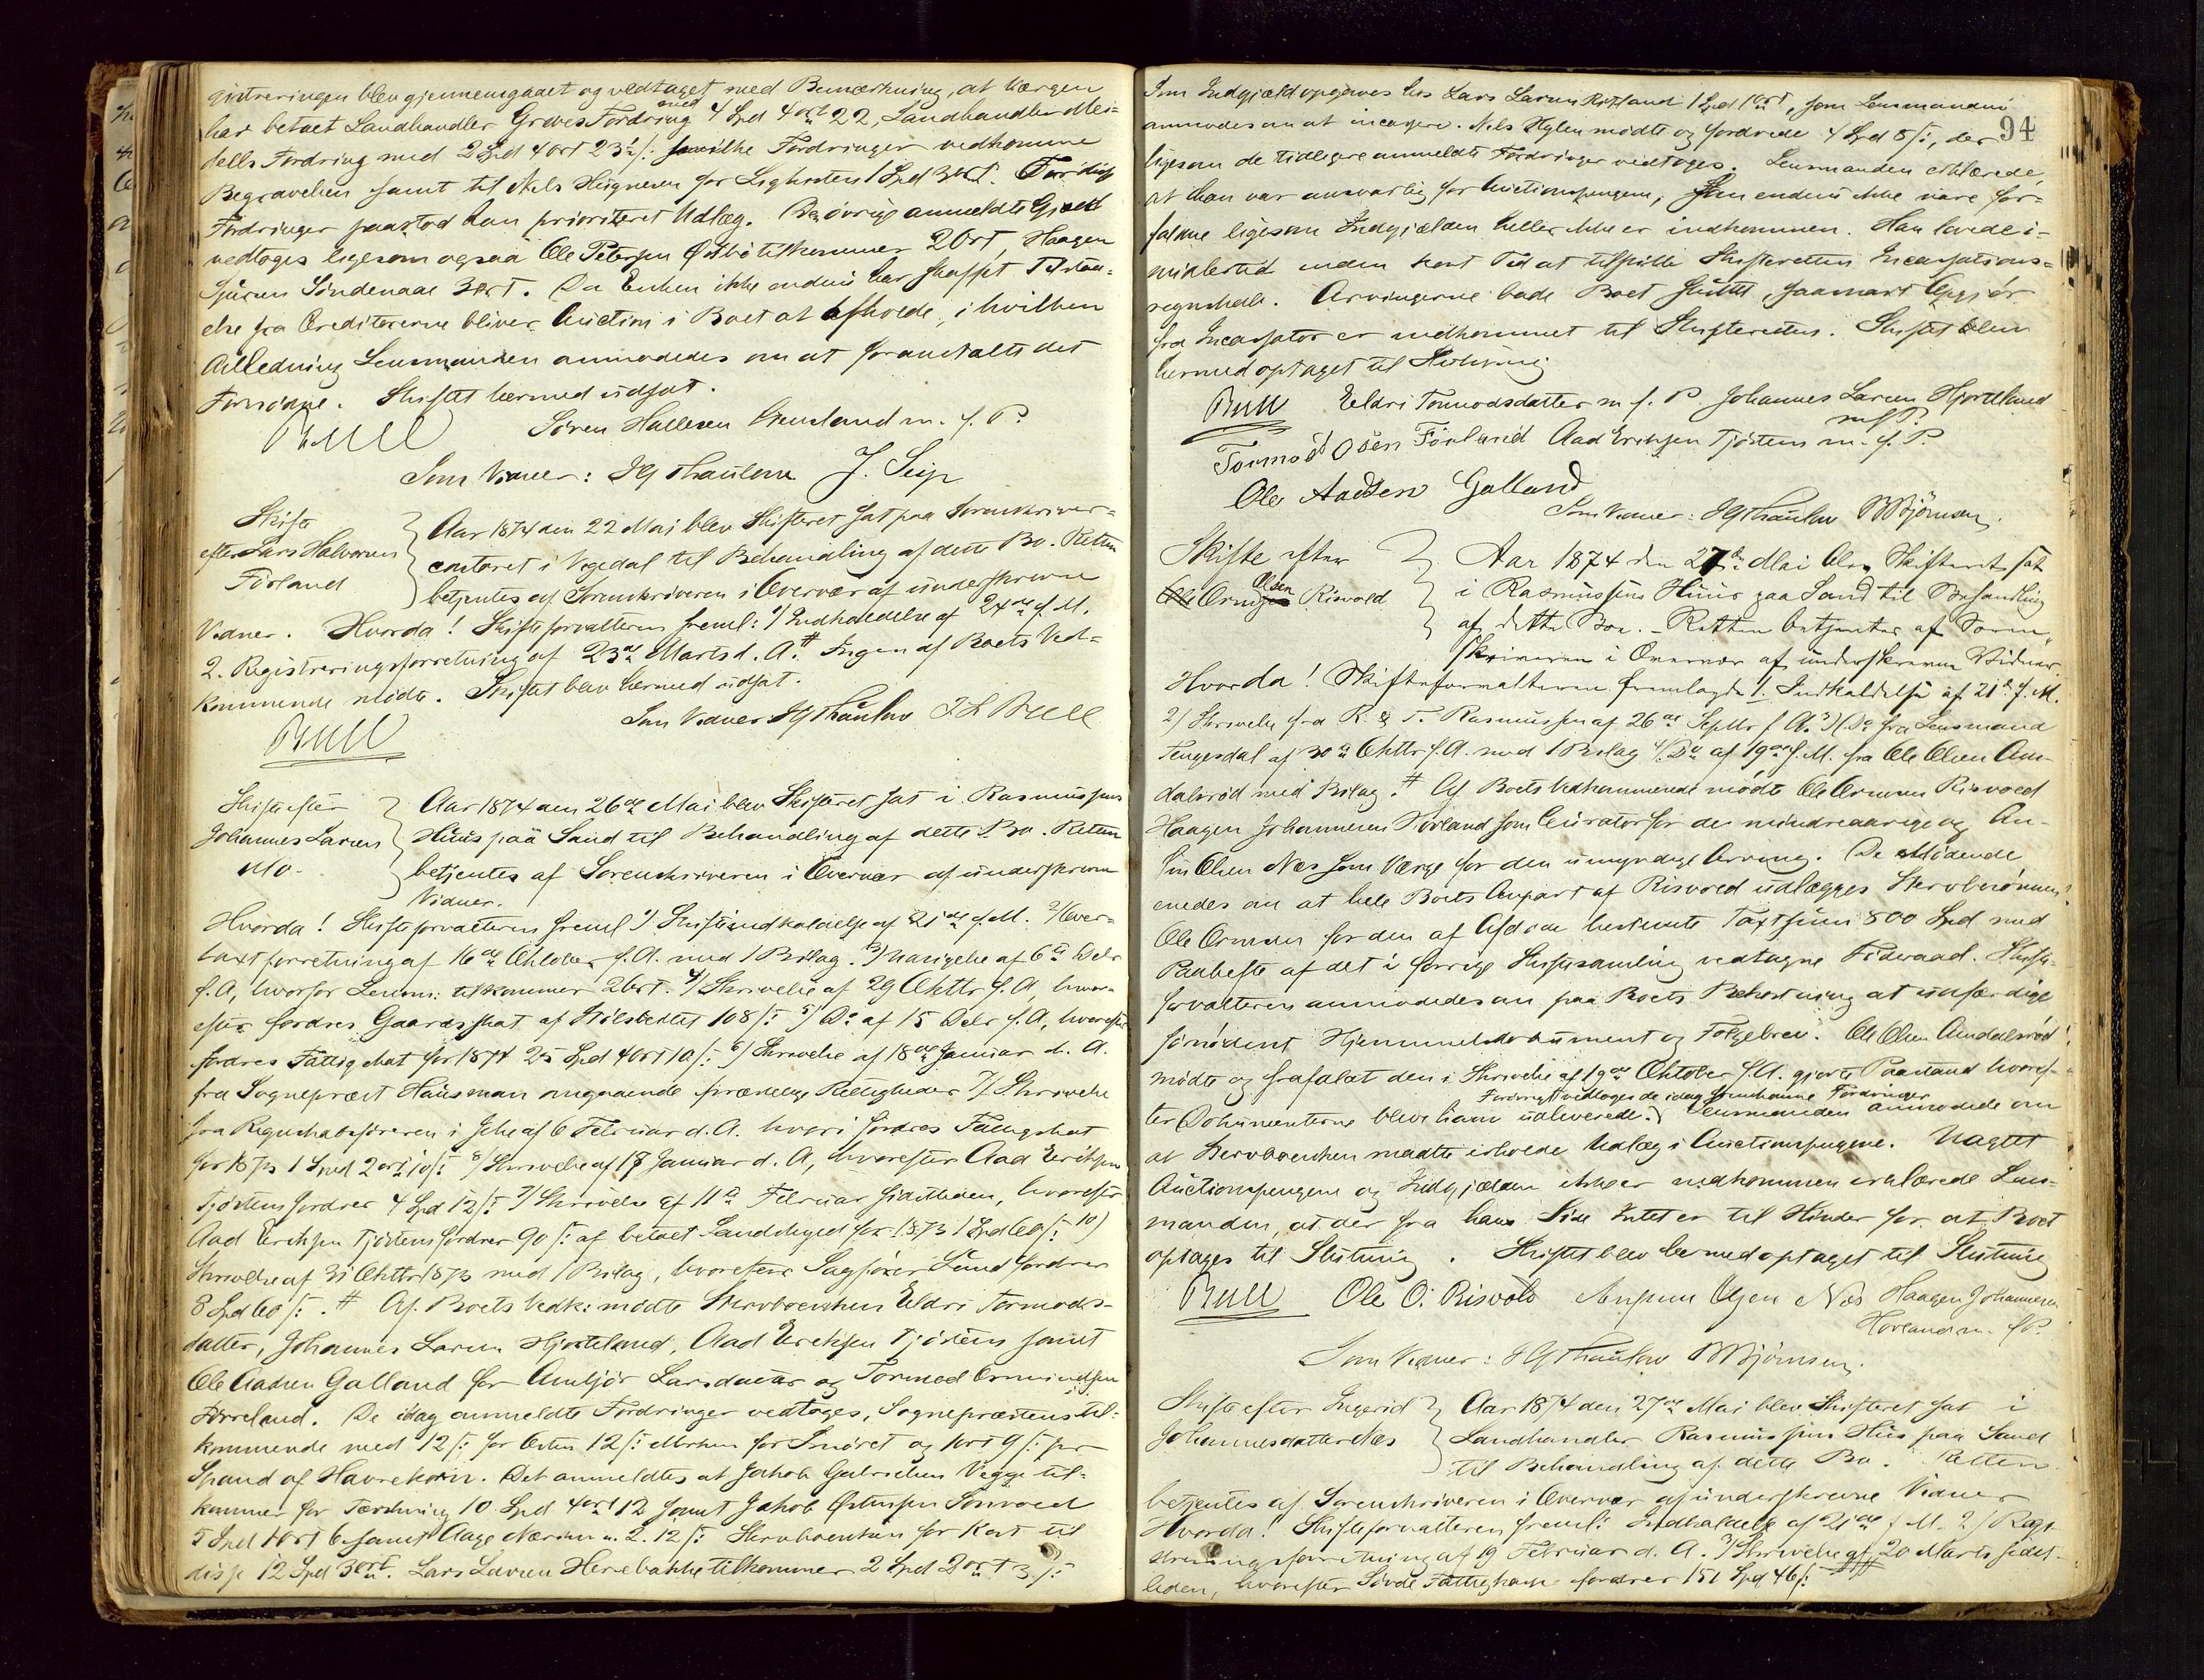 gistreringen blev gjennemgaaet og vedtaget med Bemærkning, at Værgen
har betaet Landhandler Graves Fordring med 4 Spd 4 ort 22, Landhandler
dells Fordring med 2 Spd 4 ort 23½ /: hvilke Fordringer vedkomme
Begravelsen samt til Niels for Ligkisten 1 Spd 3 ort. For disse
Fordringer paastod han prioriteret Udlæg. De øvrige anmeldte Gjæld
vedtoges ligesom ogsaa Ole Petersen Østbø tilkommer 2 Ort, Haagen
Sjursen Søndenaae 3 ort. Da Enken ikke endnu har skaffet Tilstaa-
else fra Creditorerne bliver Auction i Boet at afholde, i hvilken
Anledning Lensmanden anmodedes om at foranstalte det
Fornødne. Skiftet hermed udsat.
Bull Søren Hallesen m. f. P.
Som Vidner: HG Thaulow J. Seip
Skifte
efter Lars Halvorsen
Førland
Aar 1874 den 22 Mai blev Skifteret sat paa Sorenskriver-
contoret i Vegedal til Behandling af dette Bo. Retten
betjentes af Sorenskriveren i Overvær af underskrevne
Vidner. Hvorda! Skifteforvalteren freml: 1/ Indkaldelse af 24de f. M.
2. Registreringsforretning af 23de Marts d. A. # Ingen af Boets Ved-
kommende mødte. Skiftet blev hermed udsat.
Bull Som Vidner HG Thaulow J L Bull
Skifte efter
Johannes Larsen
Mo.
Aar 1874 den 26de Mai blev Skifteret sat i Rasmussens
Huus paa Sand til Behandling af dette Bo. Retten
betjentes af Sorenskriveren i Overvær af underskrevne
Vidner.
Hvorda! Skifteforvalteren freml 1) Skifteindkaldelse af 21de f. M. 2/ Over-
taxtforretning af 16de Oktober f. A. med 1 Bilag. 3) Navigelse af 6te Debr
f. A, hvorfor Lensm: tilkommer 2 ort. 4/ Skrivelse af 29 Oktbr f. A, hvor-
efter fordres Gaardsskat af 108 /: 5) Do af 15 Debr f. A, hvorefter
fordres Fattigskat for 1874 25 Spd 4 ort 10 /: 6) Skrivelse af 18de Januar d. A.
fra Sogneprest Hausman angaaende præstelige Rettigheder 7/ Skrivelse
fra Regnskabsføreren i af 6 Februar d. A. hvori fordres Fattigskat
for 1873 1 Spd 2 ort 10 /: 8/ Skrivelse af 17 Januar d. A, hvorefter Aad Eriksen
Tjøstem fordrer 4 Spd 12 /: 9/ Skrivelse af 11te Februar sidstleden, hvorefter
Aad Eriksen Tjøstem fordrer 90 /: af betaet Landskyld for 1873 1 Spd 60 /: 10)
Skrivelse af 31 Oktbr 1873 med 1 Bilag, hvorefter Sagfører Lund fordrer
8 Spd 60 /: . # Af Boets Vedk: mødte Stervboenken Eldri Tormods-
datter, Johannes Larsen Hjorteland, Aad Eriksen Tjøstem samt
Ole Aadsen Galland for Larsdatter og Tormod Osmundsen
Førreland. De idag anmeldte Fordringer vedtoges, Sogneprestens til-
kommende med 12 /: for Osten 12 /: Marken for Smøret og 1 ort 9 /: pr
Spand af Havrekorn. Det anmeldtes at Jakob Gabrielsen Vegge til-
kommer for Tærskning 10 Spd 4 ort 12 samt Jakob Østensen
5 Spd 1 ort 6 samt Aage 2. 12 /: Stervboenken for Kost til
disse 12 Spd 3 ort. Lars Larsen Herebakke tilkommer 2 Spd 2 ort 3 /:
94
Som Indgjæld opgaves hos Lars Larsen 1 Spd 1 ort, som Lensmanden
anmodes om at incassere. Nils Hylen mødte og fordrede 4 Spd 8 /:, der
ligesom de tidligere anmeldte Fordringer vedtoges. Lensmanden erklærede,
at han var ansvarlig for Auctionspengene, som endnu ikke vare for-
faldne ligesom Indgjælden heller ikke er indkommen. Han lovede i-
midlertid inden kort Tid at tilstille Skifteretten Incassations-
regnskab. Arvingerne bade Boet sluttet, saasnart Opgjør
fra Incassator er indkommet til Skifteretten. Skiftet blev
hermed optaget til Slutning
Bull Eldri Tormodsdatter m. f. P. Johannes Larsen Hjorteland
m f P.
Tormod Osen Førland Aad Eriksen Tjøstem m. f. P.
Ole Aadsen Galland
Som Vidner: HG Thaulow Bjørnsen.
Skifte efter
Orm Olsen Risvold
Aar 1874 den 27de Mai blev Skifteret sat
i Rasmussens Huus paa Sand til Behandling
af dette Bo. – Retten betjentes af Soren-
skriveren i Overvær af underskrevne Vidner
Hvorda! Skifteforvalteren fremlagde 1. Indkaldelse af 21de f. M.
2) Skrivelse fra R. & T. Rasmussen af 26de Septbr f. A. 3) Do fra Lensmand
Tengesdal af 30te Oktbr f. A. med 1 Bilag 4/ Do af 19de f. M. fra Ole Olsen Am-
dalsrød med Bilag. # Af Boets Vedkommende mødte Ole Ormsen Risvold
Haagen Johannesen Hovland som Curator for de mindreaarige og An-
fin Olsen Næs som Værge for den umyndige Arving. De Mødende
enedes om at hele Boets Anpart af Risvold udlægges Stervboesønnen
Ole Ormsen for den af Afdøde bestemte Taxtsum 800 Spd med
Paahefte af det i forrige Skiftesamling vedtagne Føderaad. Skifte-
forvalteren anmodedes om paa Boets Bekostning at udfærdige
fornødent Hjemmelsdokument og Følgebrev. Ole Olsen Amdalsrød
mødte og frafaldt den i Skrivelse af 19de Oktober f. A. gjorte Paastand hvoref-
Forøvrigt vedtoges de idag fremkomne Fordringer
ter Dokumenterne bleve ham udleverede. Lensmanden anmodede om
at Stervboenken maatte erholde Udlæg i Auctionspengene. Uagtet
Auctionspengene og Indgjælden ikke er indkommen erklærede Lens-
manden, at der fra hans Side Intet er til Hinder for at Boet
optages til Slutning. Skiftet blev hermed optaget til Slutning
Bull Ole O. Risvold Olsen Næs Haagen Johannesen
Hovland m. f P.
Som Vidner: HG Thaulow Bjørnsen.
Skifte efter Ingerid
Johannesdatter Næs
Aar 1874 den 27de Mai blev Skifteret sat i
Landhandler Rasmussens Hus paa Sand
til Behandling af dette Bo. Retten
betjentes af Sorenskriveren i Overvær af underskrevne Vidner
Hvorda! Skifteforvalteren freml: Indkaldelse af 21de f. M. 2/ Regi-
streringsforretning af 19 Februar d. A. 3) Skrivelse af 20 Marts sidst-
leden, hvorefter Søvde Fattigkasse fordrer 151 Spd 46 /: